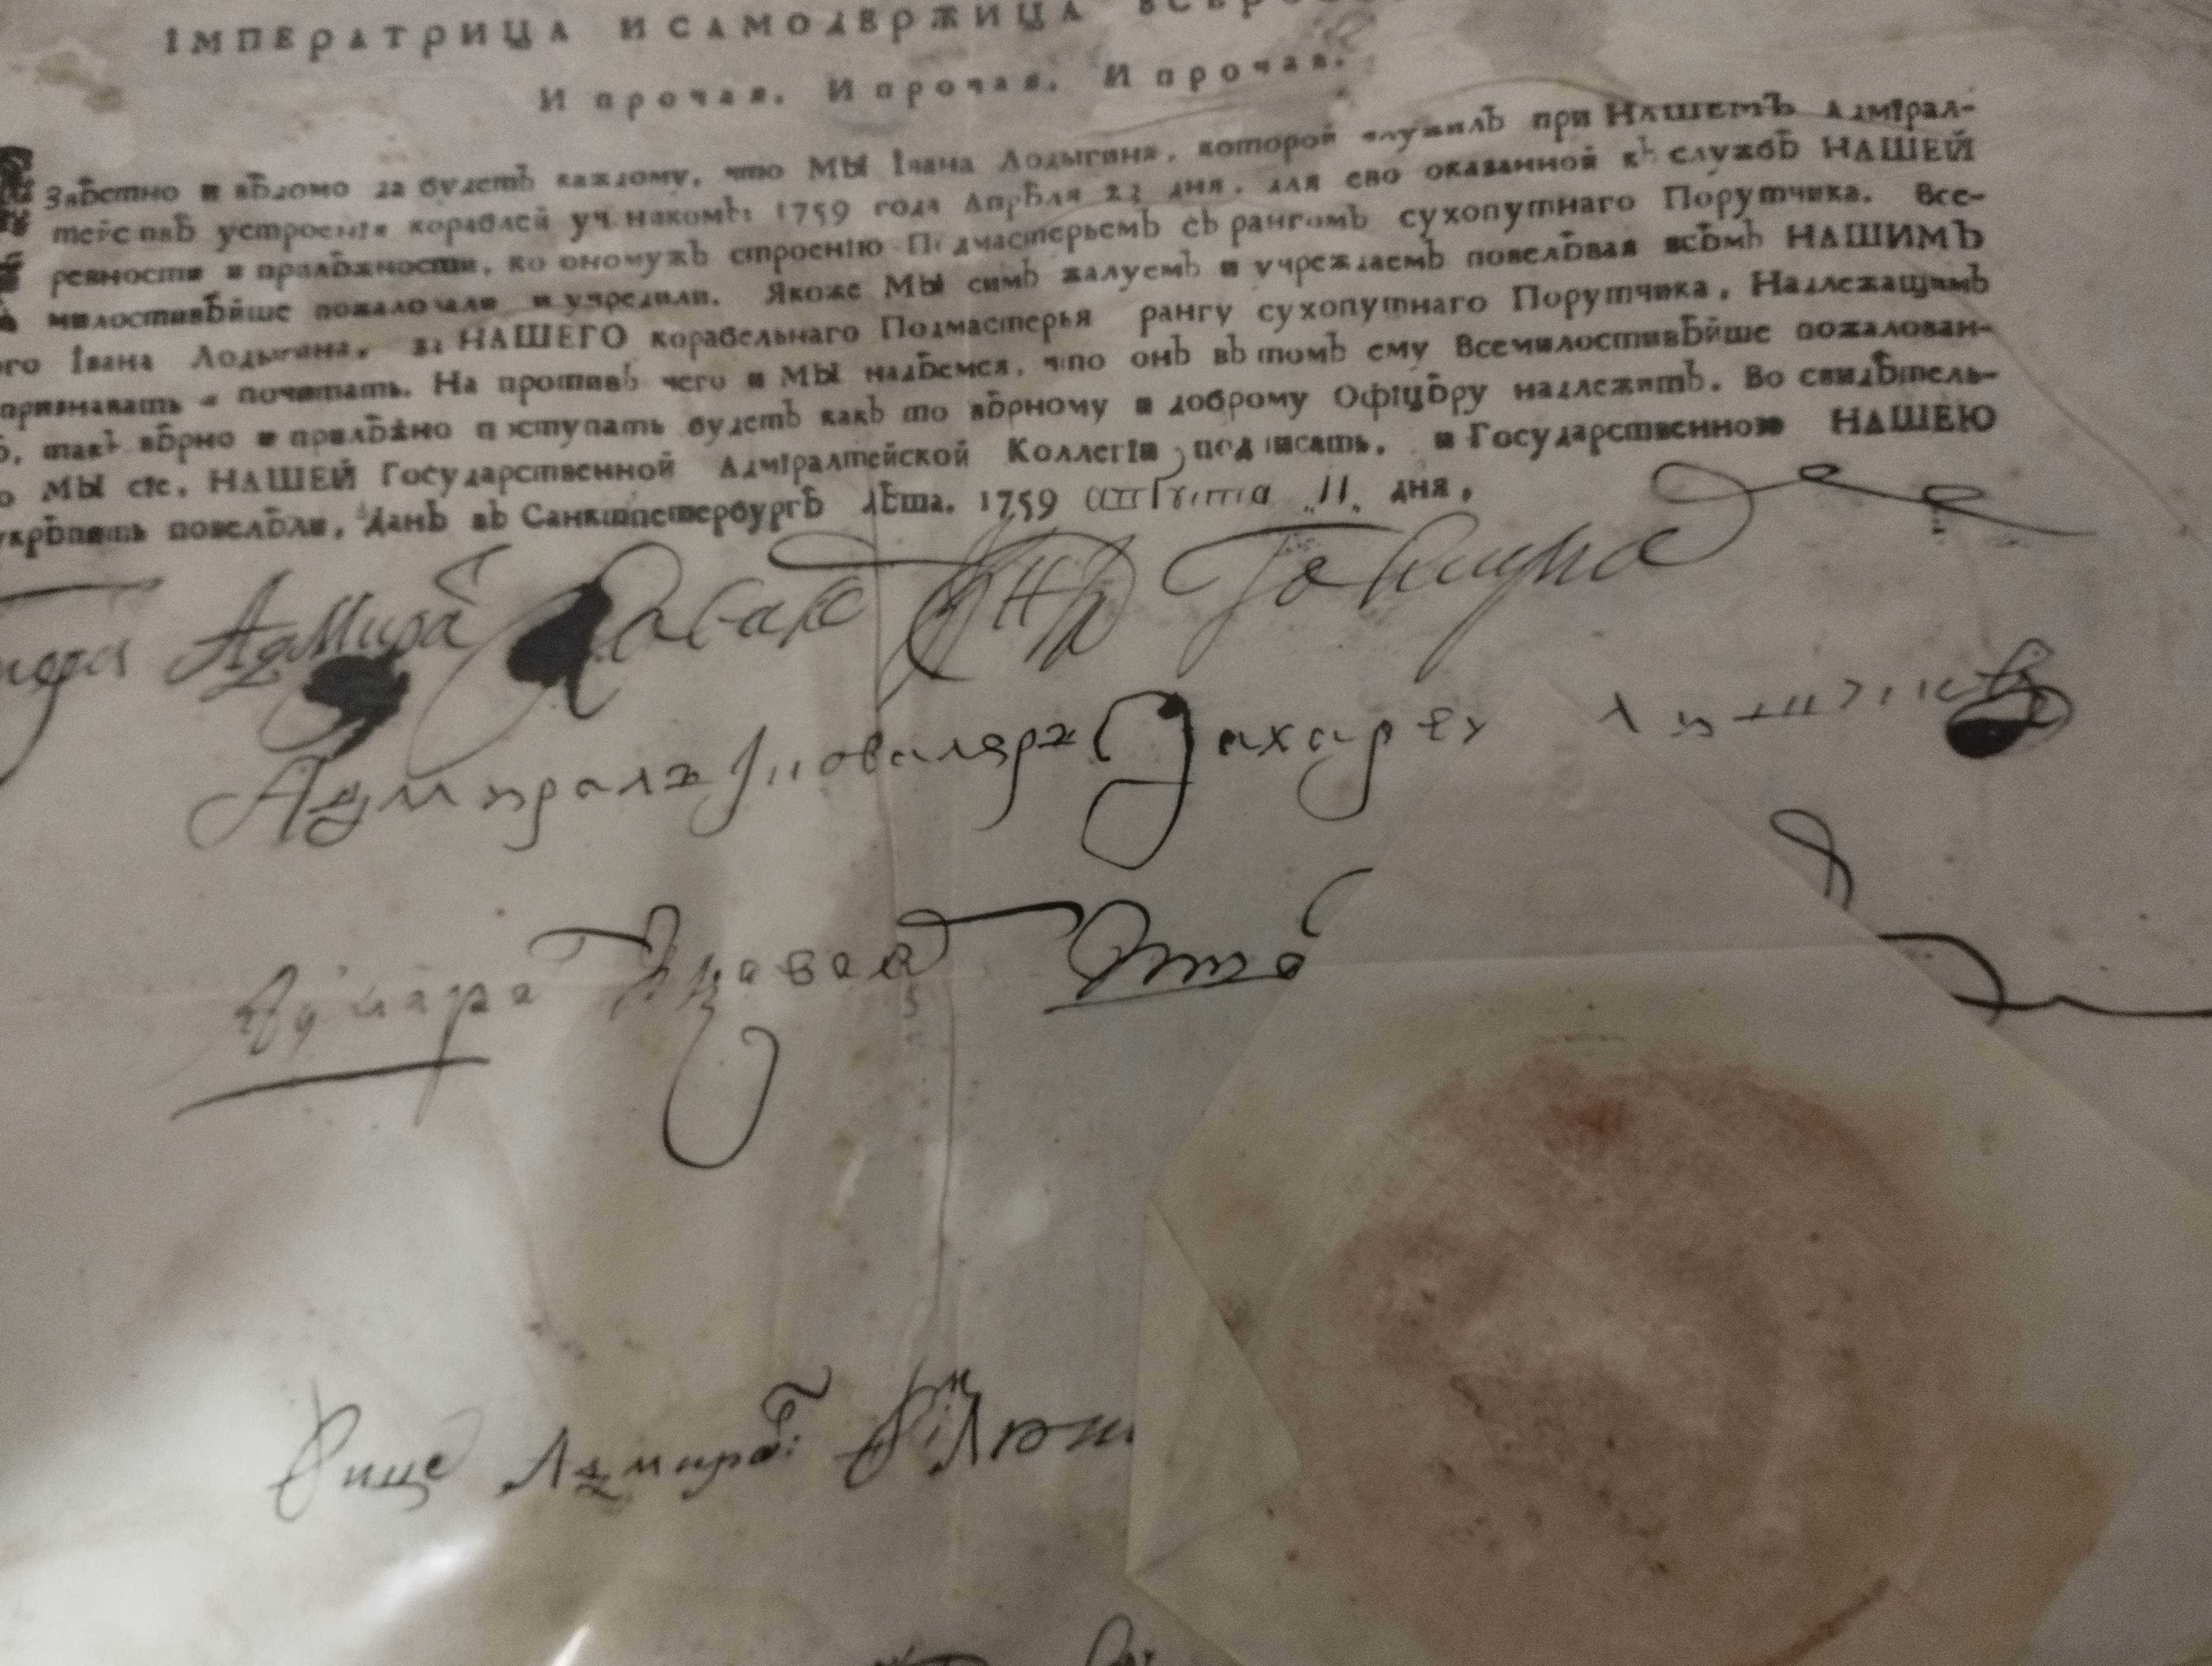 ІМПЕРАТРИЦА И САМОДЕРЖИЦА ВСЕРОС
И прочая, И прочая, И прочая.
Звѣстно и вѣдомо да будетъ каждому, что МЫ Івана Лодыгина, которой служилъ при НАШЕМЪ Адмірал-
тействѣ устроенія кораблей ученикомъ: 1759 года Апрѣля 23 дня, для ево оказанной къ службѣ НАШЕЙ
ревности и прилѣжности, ко ономужъ строенію Подмастерьемъ съ рангомъ сухопутнаго Порутчика. Все-
милостивѣйше пожаловали и учредили. Якоже МЫ симъ жалуемъ и учреждаемъ повелѣвая всѣмъ НАШИМЪ
ого Івана Лодыгина, за НАШЕГО корабельнаго Подмастерья рангу сухопутнаго Порутчика, Надлежащимъ
признавать и почитать. На противъ чего и МЫ надѣемся, что онъ въ томъ ему Всемилостивѣйше пожалован-
ѣ, такъ вѣрно и прилѣжно поступать будетъ какъ то вѣрному и доброму Офіцѣру надлежитъ. Во свидѣтель-
о МЫ сіе, НАШЕЙ Государственной Адміралтейской Коллегіи подписать, и Государственною НАШЕЮ
укрѣпить повелѣли, Данъ въ Санктпетербургѣ лѣта. 1759 августа 11 дня,
Адмира КНЯ Голицына
Адмирала Захаръ
Адмира
Вице Адмира: